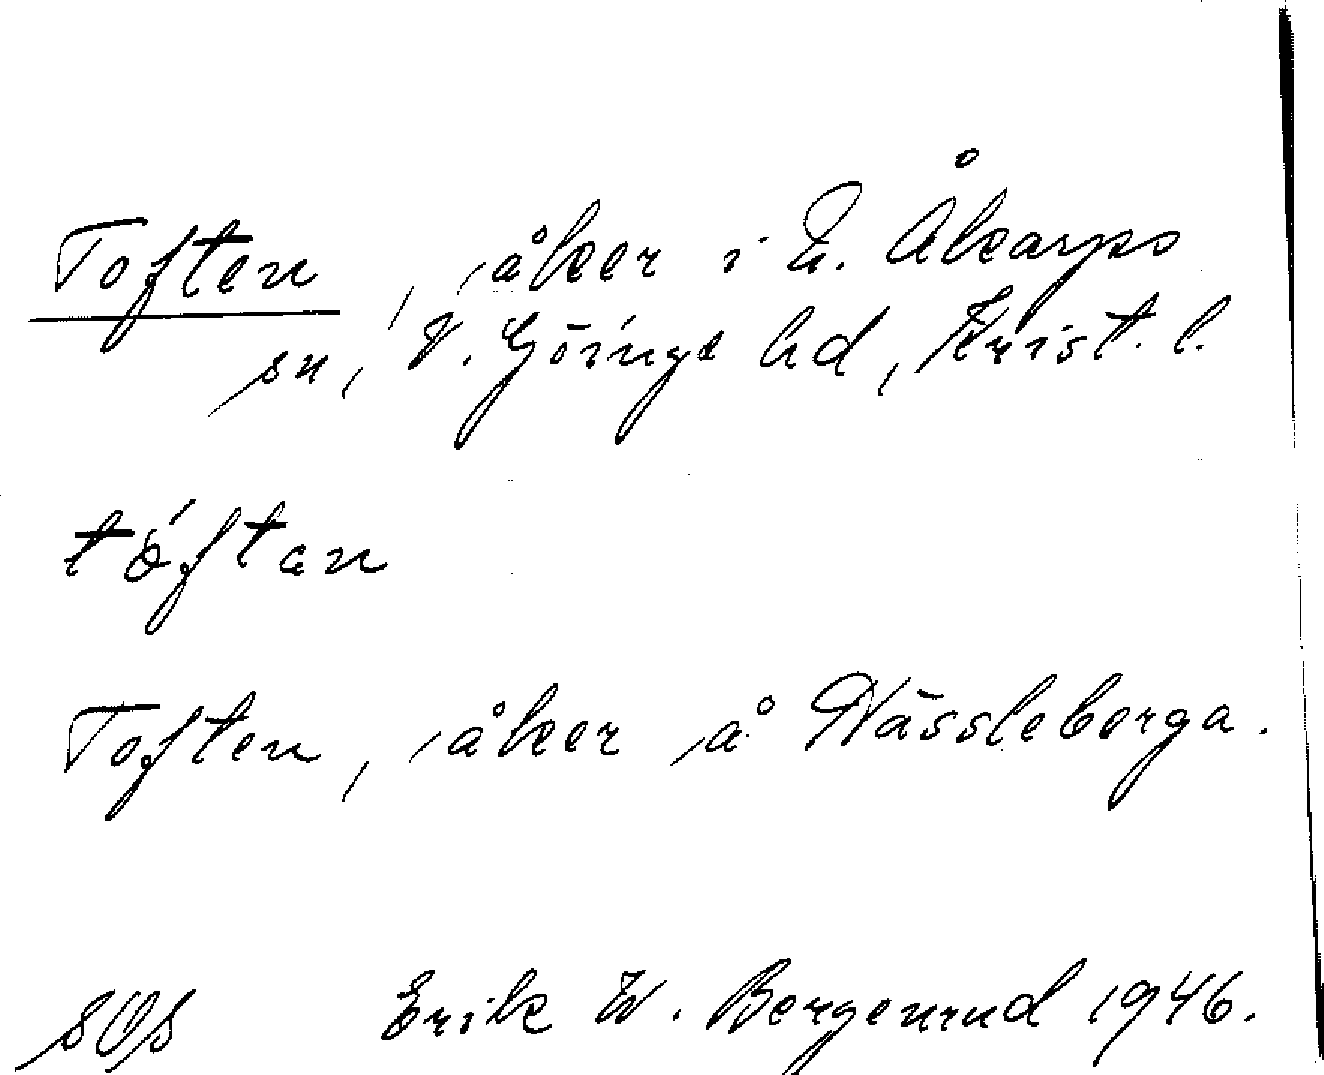 Toften, åker i N. Åkarps
sn, V. Göinge hd, Krist. l.
tóftən
Toften, åker å Nässleberga.
Erik W. Bergenrud 1946.